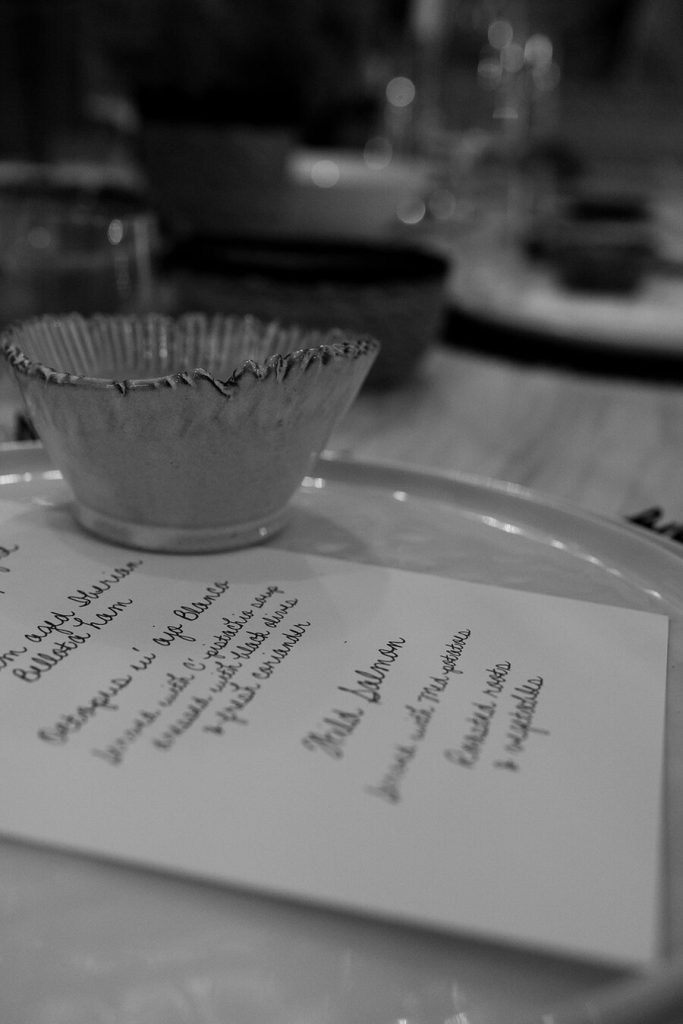 aged Iberian
Bellota ham
Octopus in' ajo Blanco
served with C' pistachio soup
dressed with black olives
& fresh coriander
Wild Salmon
served with Med potatoes
Roasted roots
& vegetables